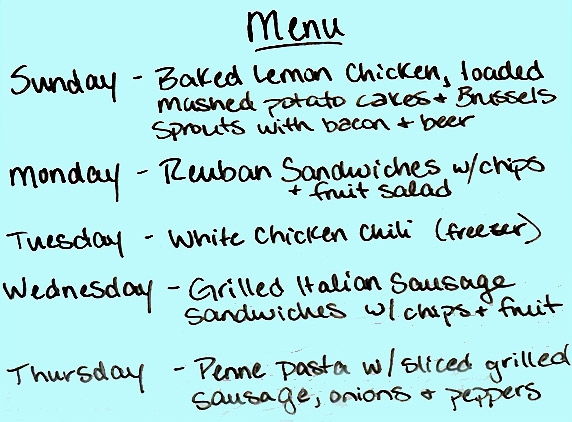 Menu
Sunday - Baked Lemon Chicken, loaded
mashed potato cakes + Brussels
sprouts with bacon + beer
Monday - Reuban Sandwiches w/chips
+ fruit salad
Tuesday - White Chicken Chili (freezer)
Wednesday - Grilled Italian Sausage
sandwiches w/ chips + fruit
Thursday - Penne pasta w/ sliced grilled
sausage, onions + peppers